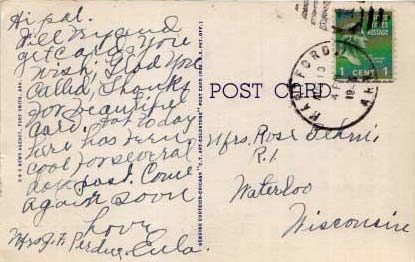 Hi pal.
Will try and
get cards you
wish, Glad you
called, Thanks
for beautiful
card. for today
here has been
cool for several
days past. Come
again soon
Love
Mrs J. F. Perdue, Eula.
POST CARD
Mrs. Rose
R.1
Waterloo
Wisconsin
1 CENT 1
HARTFORD
ARK
GENUINE CURTEICH-CHICAGO "C.T. ART-COLORTONE" POST CARD (REG. U.S. PAT. OFF.)
NEWS AGENCY, FORT SMITH, ARK.